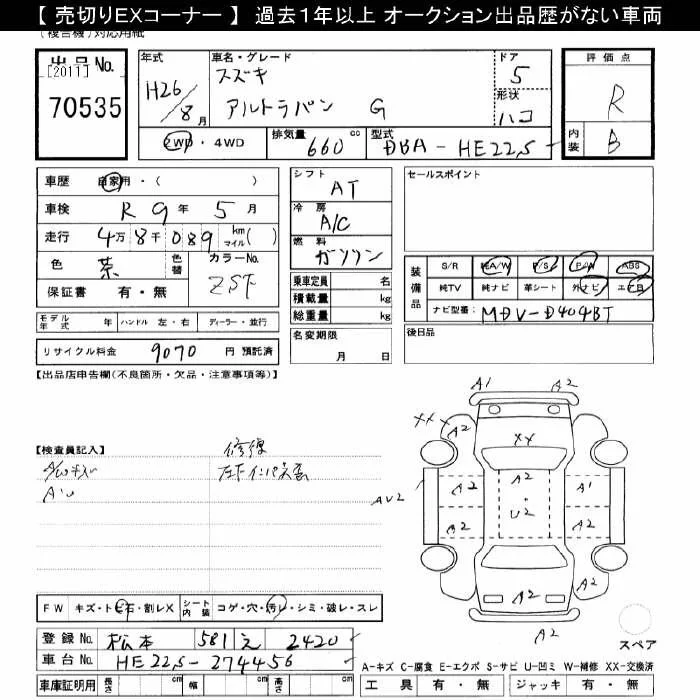 【 売切りEXコーナー 】 過去１年以上 オークション出品歴がない車両
(複合機)対応用紙
出品No. [2011] 70535
年式 H26/8月
車名・グレード スズキ アルトラパン G
ドア 5
形状 ハコ
評価点 R
内装 B
2WD・4WD
排気量 660 cc
型式 DBA-HE22S
車歴 自家用・( )
車検 R9年5月
走行 4万8千089 km マイル( )
色 茶 色替 カラーNo. ZSF
保証書 有・無
シフト AT
冷房 A/C
燃料 ガソリン
乗車定員 名
積載量 kg
総重量 kg
セールスポイント
装備品 S/R 純A/W P/S P/W ABS
純TV 純ナビ 革シート 外ナビ エアB
ナビ型番: MDV-D404BT
モデル年式 年 ハンドル 左・右 ディーラー・並行
名変期限 月 日
後日品
リサイクル料金 9070 円 預託済
【出品店申告欄(不良個所・欠品・注意事項等)】
A1 A2
XX X A2
XX
【検査員記入】 修復
A/Wキズ 左F インパネ
AW
A2 A2 A1
AU2
U2
A2 A2 A2
A2 A2
FW キズ・ト石・割レX シート内装 コゲ・穴・汚レ・シミ・破レ・スレ
A2
スペア
登録No. 松本 581 え 2420
車台No. HE22S-274456
A-キズ C-腐食 E-エクボ S-サビ U-凹ミ W-補修 XX-交換済
車庫証明用 長さ cm 幅 cm 高さ cm
工具 有・無 ジャッキ 有・無